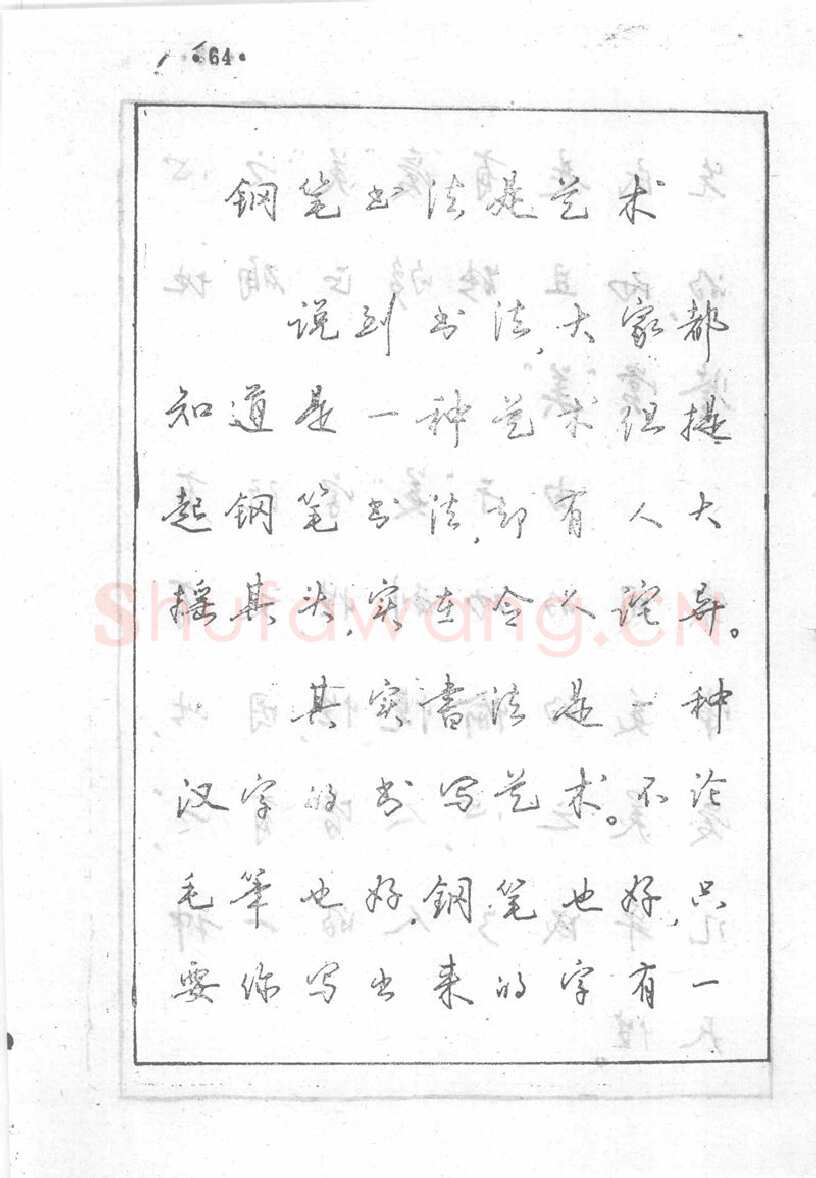 ·64·
钢笔书法是艺术
说到书法,大家都
知道是一种艺术但提
起钢笔书法,却有人大
摇其头,实在令人诧异。
其实書法是一种
汉字的书写艺术。不论
毛筆也好,钢笔也好,只
要你写出来的字有一
Shufawang.CN